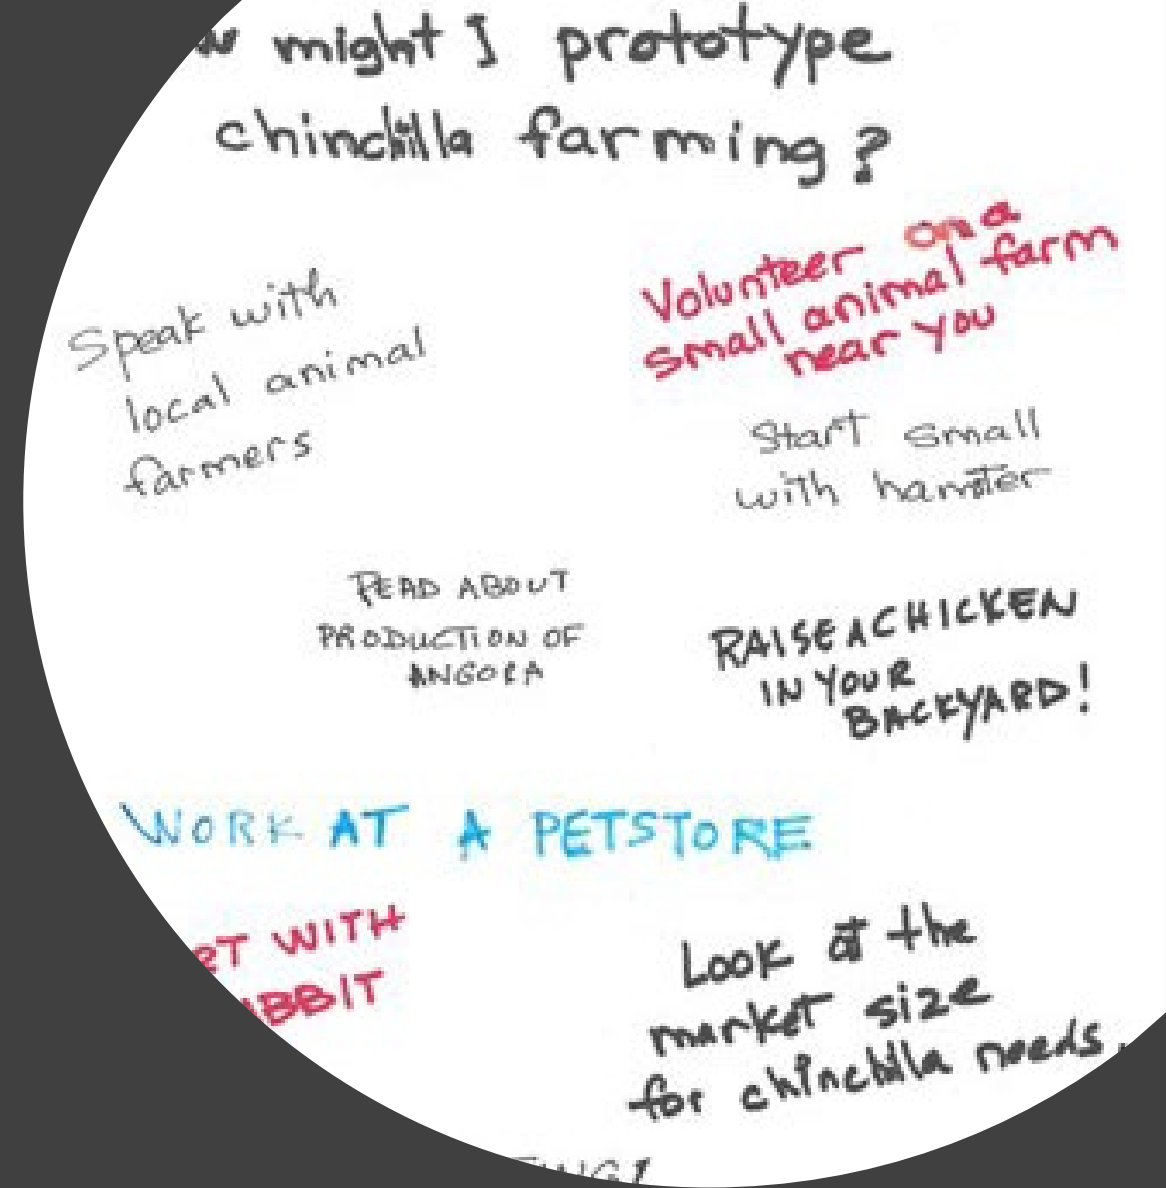 might I prototype
chinchilla farming?
Volunteer on a
small animal farm
near you
Speak with
local animal
farmers
Start small
with hamster
READ ABOUT
PRODUCTION OF
ANGORA
RAISE A CHICKEN
IN YOUR
BACKYARD!
WORK AT A PETSTORE
WITH
Look at the
market size
for chinchilla needs.